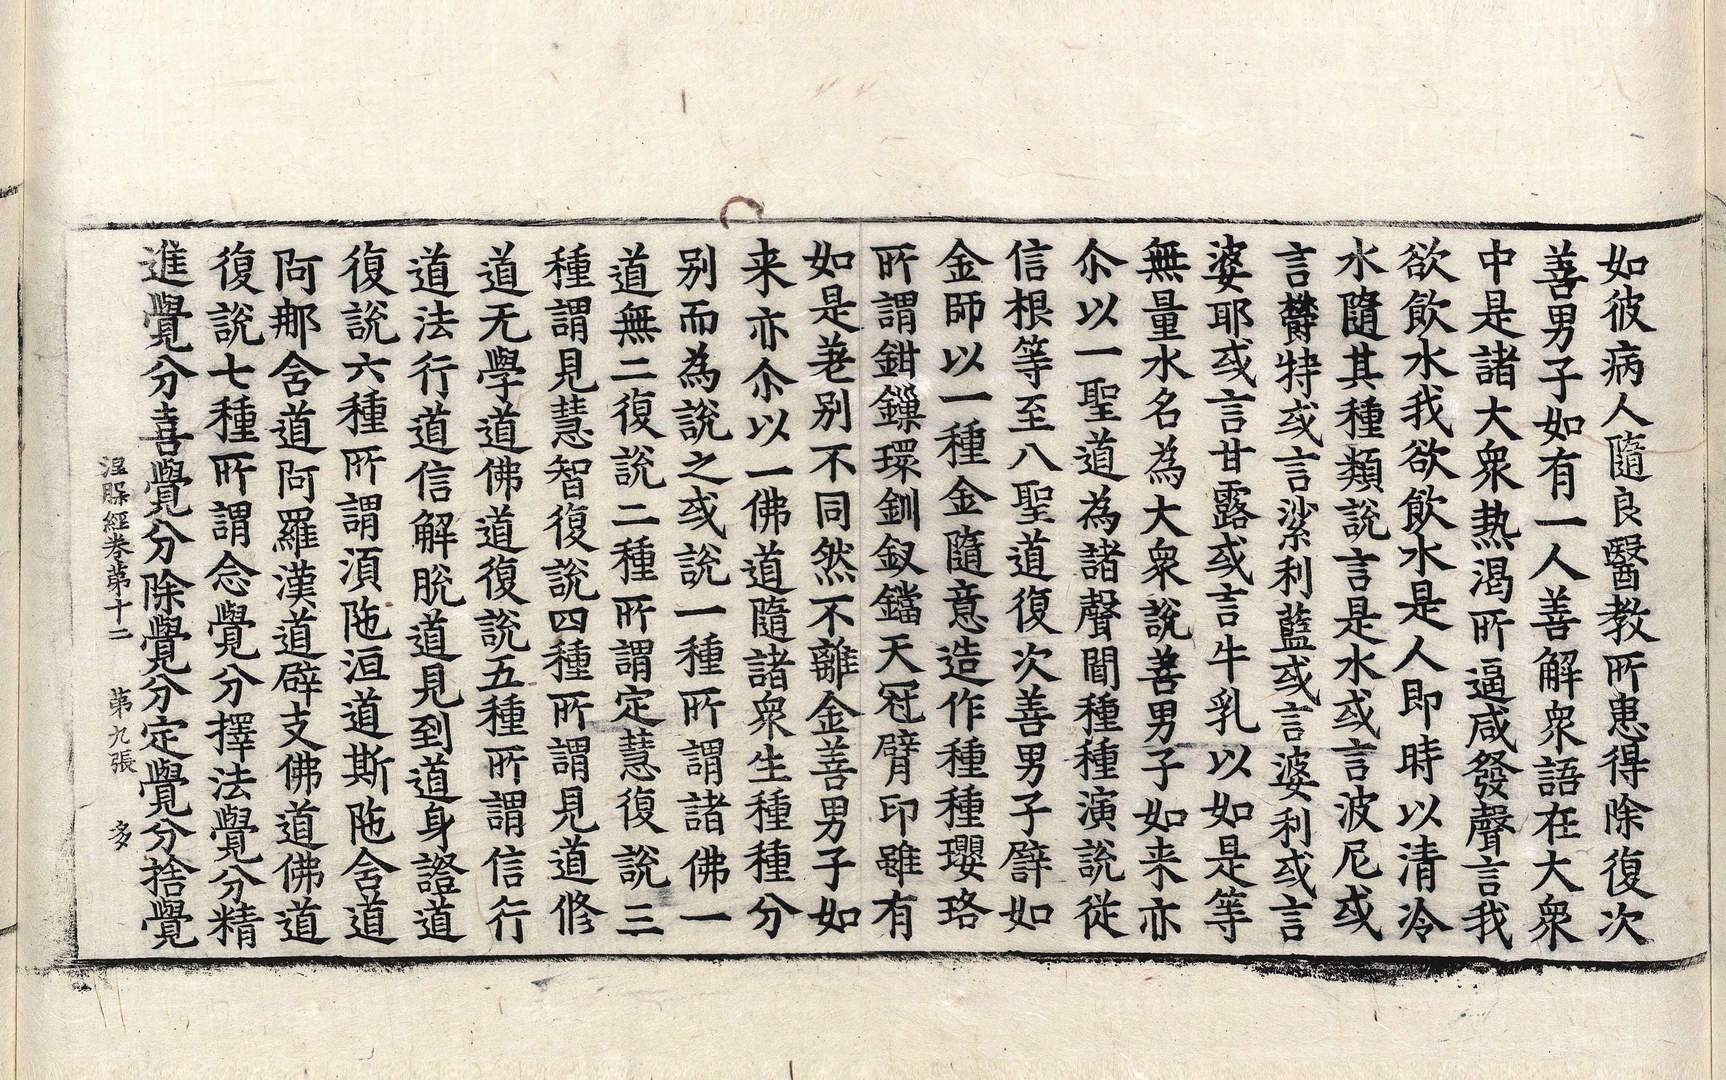 如彼病人隨良醫教所患得除復次
善男子如有一人善解衆語在大衆
中是諸大衆热渴所逼咸發聲言我
欲飲水我欲飲水是人即時以清冷
水隨其種類說言是水或言波尼或
言欝特或言娑利藍或言婆利或言
婆耶或言甘露或言牛乳以如是等
無量水名為大衆說善男子如来亦
尒以一聖道為諸聲聞種種演說從
信根等至八聖道復次善男子譬如
金師以一種金隨意造作種種瓔珞
所謂鉗鏁環釧釵鐺天冠臂印雖有
如是差别不同然不離金善男子如
来亦尒以一佛道隨諸衆生種種分
别而為說之或說一種所謂諸佛一
道無二復說二種所謂定慧復說三
種謂見慧智復說四種所謂見道修
道无學道佛道復說五種所謂信行
道法行道信解脫道見到道身證道
復說六種所謂湏陁洹道斯陁含道
阿那含道阿羅漢道辟支佛道佛道
復說七種所謂念覺分擇法覺分精
進覺分喜覺分除覺分定覺分捨覺
涅槃經卷第十二 第九張 多